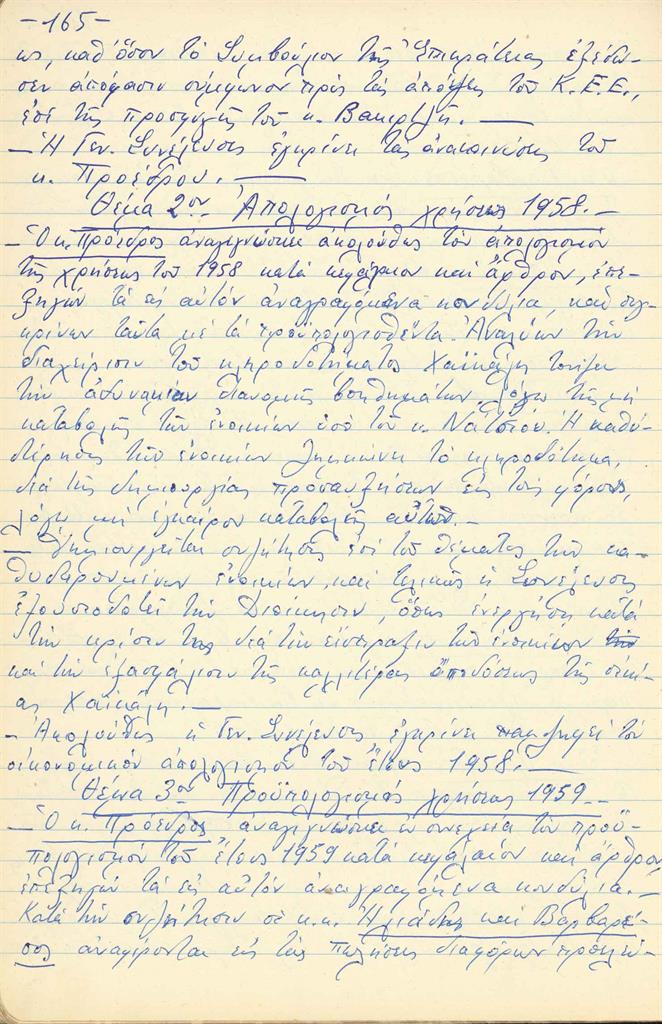 -165-
ως, καθ' ὅσον τὸ Συμβούλιον τῆς Ἐπικρατείας ἐξέδω-
σεν ἀπόφασιν σύμφωνον πρὸς τὰς ἀπόψεις τοῦ Κ.Ε.Ε.,
ἐπὶ τῆς προσφυγῆς τοῦ κ. Βακιρτζῆ. —
- Ἡ Γεν. Συνέλευσις ἐγκρίνει τὰς ἀνακοινώσεις τοῦ
κ. Προέδρου. —
Θέμα 2ον Ἀπολογισμός χρήσεως 1958.-
- Ὁ κ. Πρόεδρος ἀναγιγνώσκει ἀκολούθως τὸν ἀπολογισμὸν
τῆς χρήσεως τοῦ 1958 κατὰ κεφάλαιον καὶ ἄρθρον, ἐπε-
ξηγῶν τὰ εἰς αὐτὸν ἀναγραφόμενα κονδύλια, καὶ συγ-
κρίνων ταῦτα μὲ τὰ προϋπολογισθέντα. Ἀναλύων τὴν
διαχείρισιν τοῦ κληροδοτήματος Χαϊκάλη τονίζει
τὴν ἀδυναμίαν διανομῆς βοηθημάτων, λόγω τῆς μὴ
καταβολῆς τῶν ἐνοικίων ὑπὸ τοῦ κ. Νάτσιου. Ἡ καθυ-
στέρησις τῶν ἐνοικίων ζημιώνει τὸ κληροδότημα,
διὰ τῆς δημιουργίας προσαυξήσεων εἰς τοὺς φόρους,
λόγω μὴ ἐγκαίρου καταβολῆς αὐτῶν.-
- Δημιουργεῖται συζήτησις ἐπὶ τοῦ θέματος τῶν κα-
θυστερουμένων ἐνοικίων, καὶ τελικῶς ἡ Συνέλευσις
ἐξουσιοδοτεῖ τὴν Διοίκησιν, ὅπως ἐνεργήση κατὰ
τὴν κρίσιν της διὰ τὴν εἴσπραξιν τῶν ἐνοικίων
καὶ τὴν ἐξασφάλισιν τῆς καλλιτέρας ἀποδόσεως τῆς οἰκί-
ας Χαϊκάλη. —
- Ἀκολούθως ἡ Γεν. Συνέλευσις ἐγκρίνει παμψηφεὶ τὸν
οἰκονομικὸν ἀπολογισμὸν τοῦ ἔτους 1958. —
Θέμα 3ον Προϋπολογισμός χρήσεως 1959.-
- Ὁ κ. Πρόεδρος ἀναγιγνώσκει ἐν συνεχεία τὸν προϋ-
πολογισμὸν τοῦ ἔτους 1959 κατὰ κεφάλαιον καὶ ἄρθρον,
ἐπεξηγῶν τὰ εἰς αὐτὸν ἀναγραφόμενα κονδύλια.-
Κατὰ τὴν συζήτησιν οἱ κ.κ. Ἠλιάδης καὶ Βαρβαρέ-
σος ἀναφέρονται εἰς τὰς πωλήσεις διαφόρων